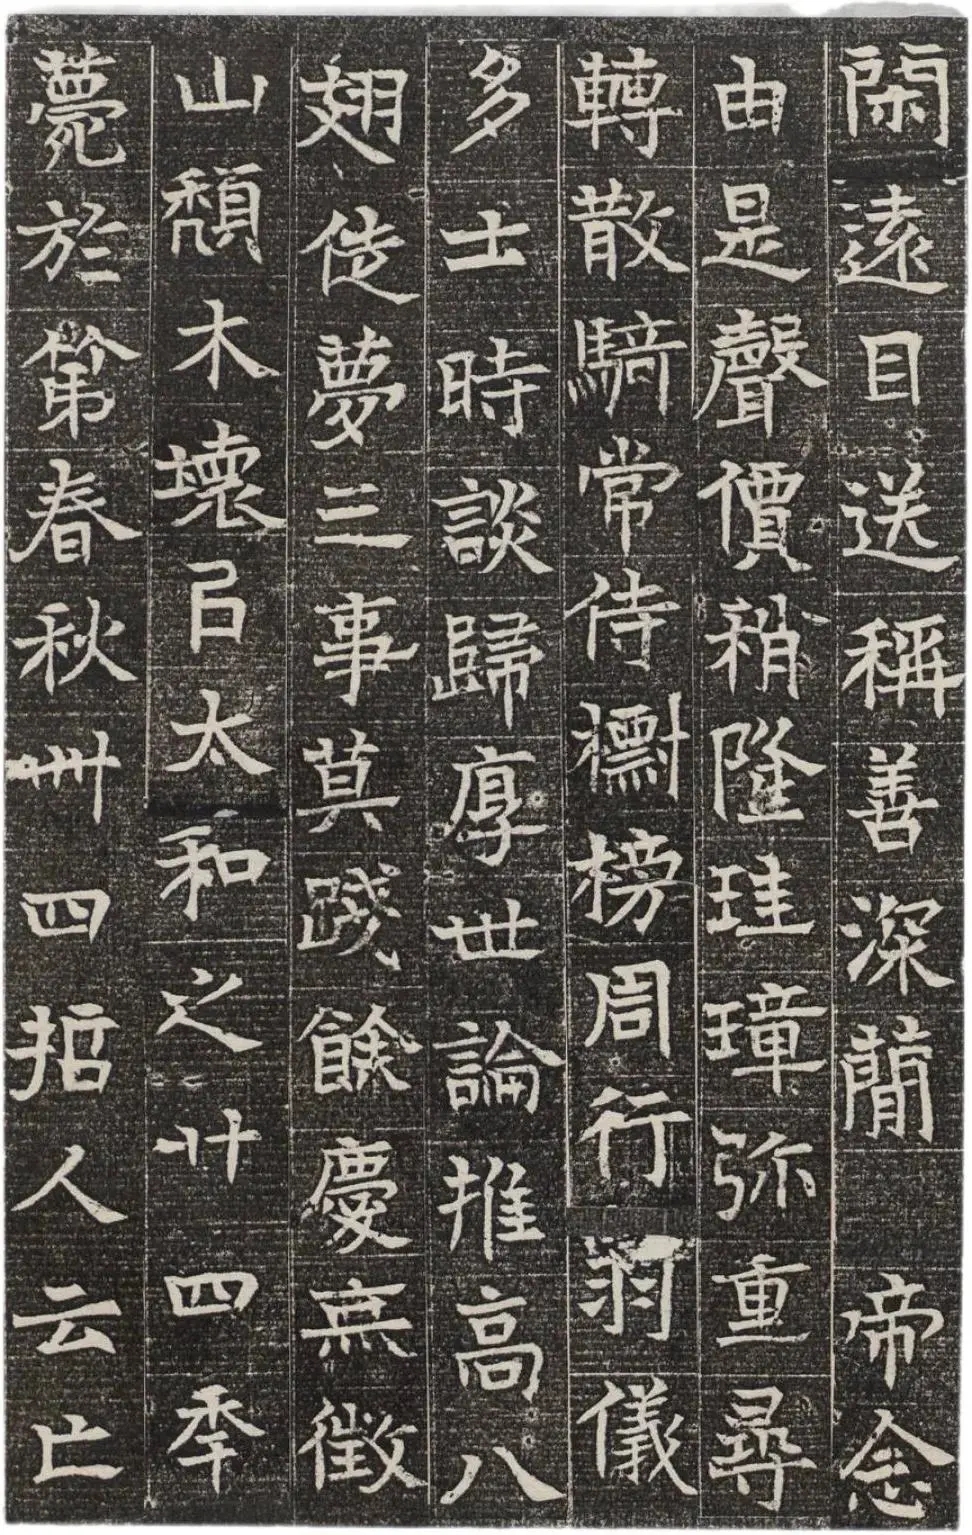 閑遠目送稱善深簡 帝念
由是聲價稍隆珪璋弥重尋
轉散騎常侍榜周行羽儀
多士時談歸厚世論推高八
翅徒夢三事莫踐餘慶無徵
山頹木壞以太和之廿四年
薨於第春秋卌四哲人云亡